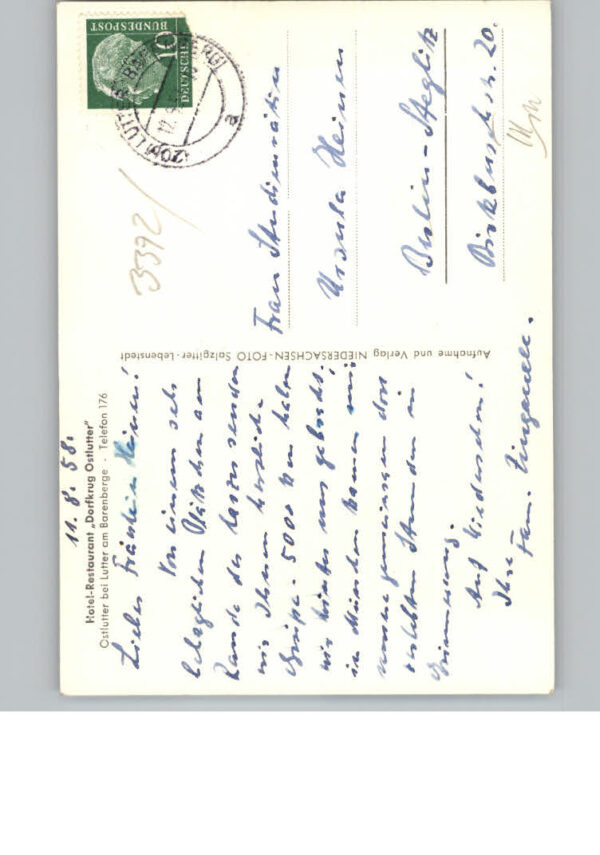 Hotel-Restaurant „Dorfkrug Ostlutter"
Ostlutter bei Lutter am Barenberge · Telefon 176
11. 8. 58.
Liebes Fräulein Heinen!
Von einem sehr
behaglichen Plätzchen am
Rande des Harzes senden
wir Ihnen herzliche
Grüße. 5000 km haben
wir hinter uns gebracht,
in München kamen mir
unsere gemeinsam dort
verlebten Stunden in
Erinnerung.
Auf Wiedersehen!
Ihre
Fam.
Aufnahme und Verlag NIEDERSACHSEN-FOTO Salzgitter-Lebenstedt
DEUTSCHE
BUNDESPOST
10
LUTTER
a
Frau Studienrätin
Ursula Heinen
Berlin-Steglitz
Birkbuschstr. 20.
3392/